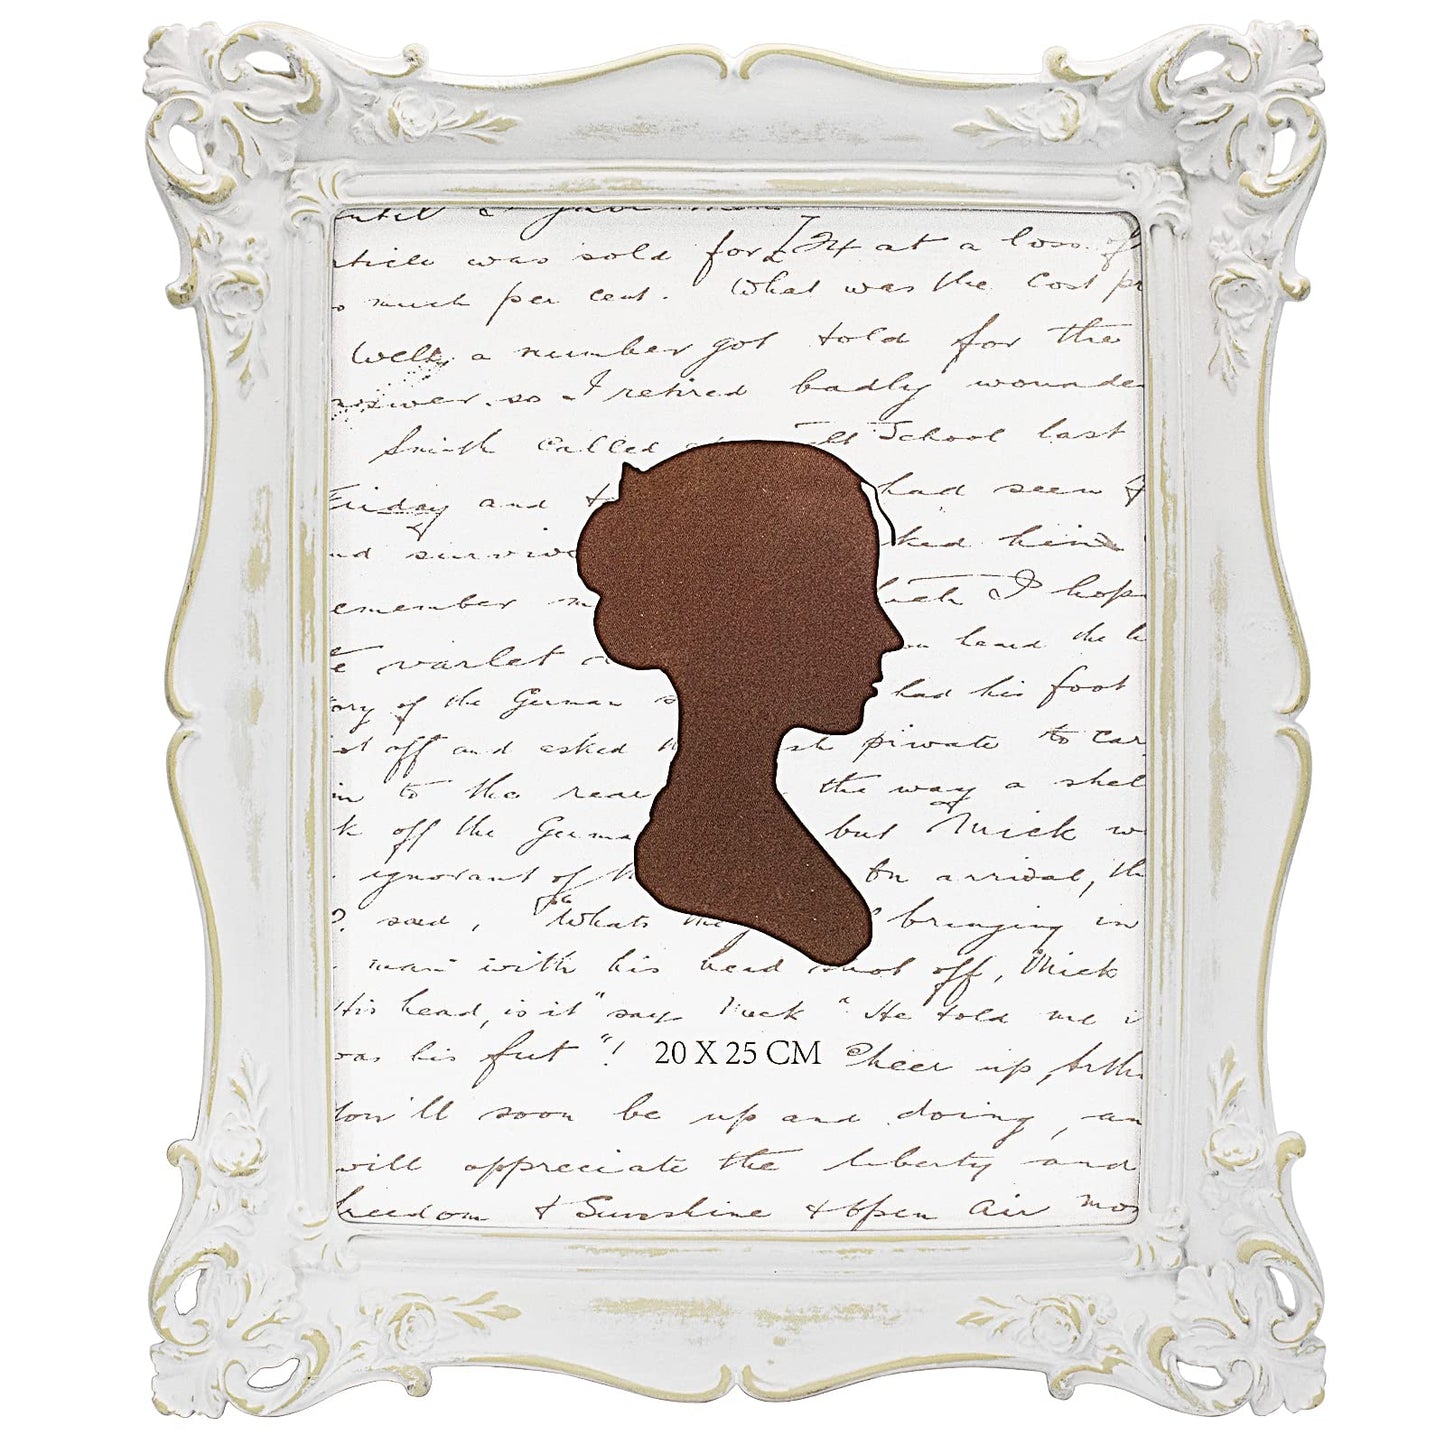 was sold for £24 at a loss of
much per cent. What was the Cost pr
Well, a number got told for the
answer. so I retired badly wounde
Smith called School last
Friday and had seen
nd survive ked him
emember I hope
varlet heard the
ory of the German had his foot
off and asked private to car
in to the rear the way a shel
k off the Germa but Mick w
ignorant of On arrival, th
? said, "Whats the bringing in
man with his head shot off, Mick
His head, is it" say Mick "He told me i
was his feet"! 20 X 25 CM Cheer up, Arthu
You'll soon be up and doing, an
will appreciate the liberty and
freedom & Sunshine & open air mos